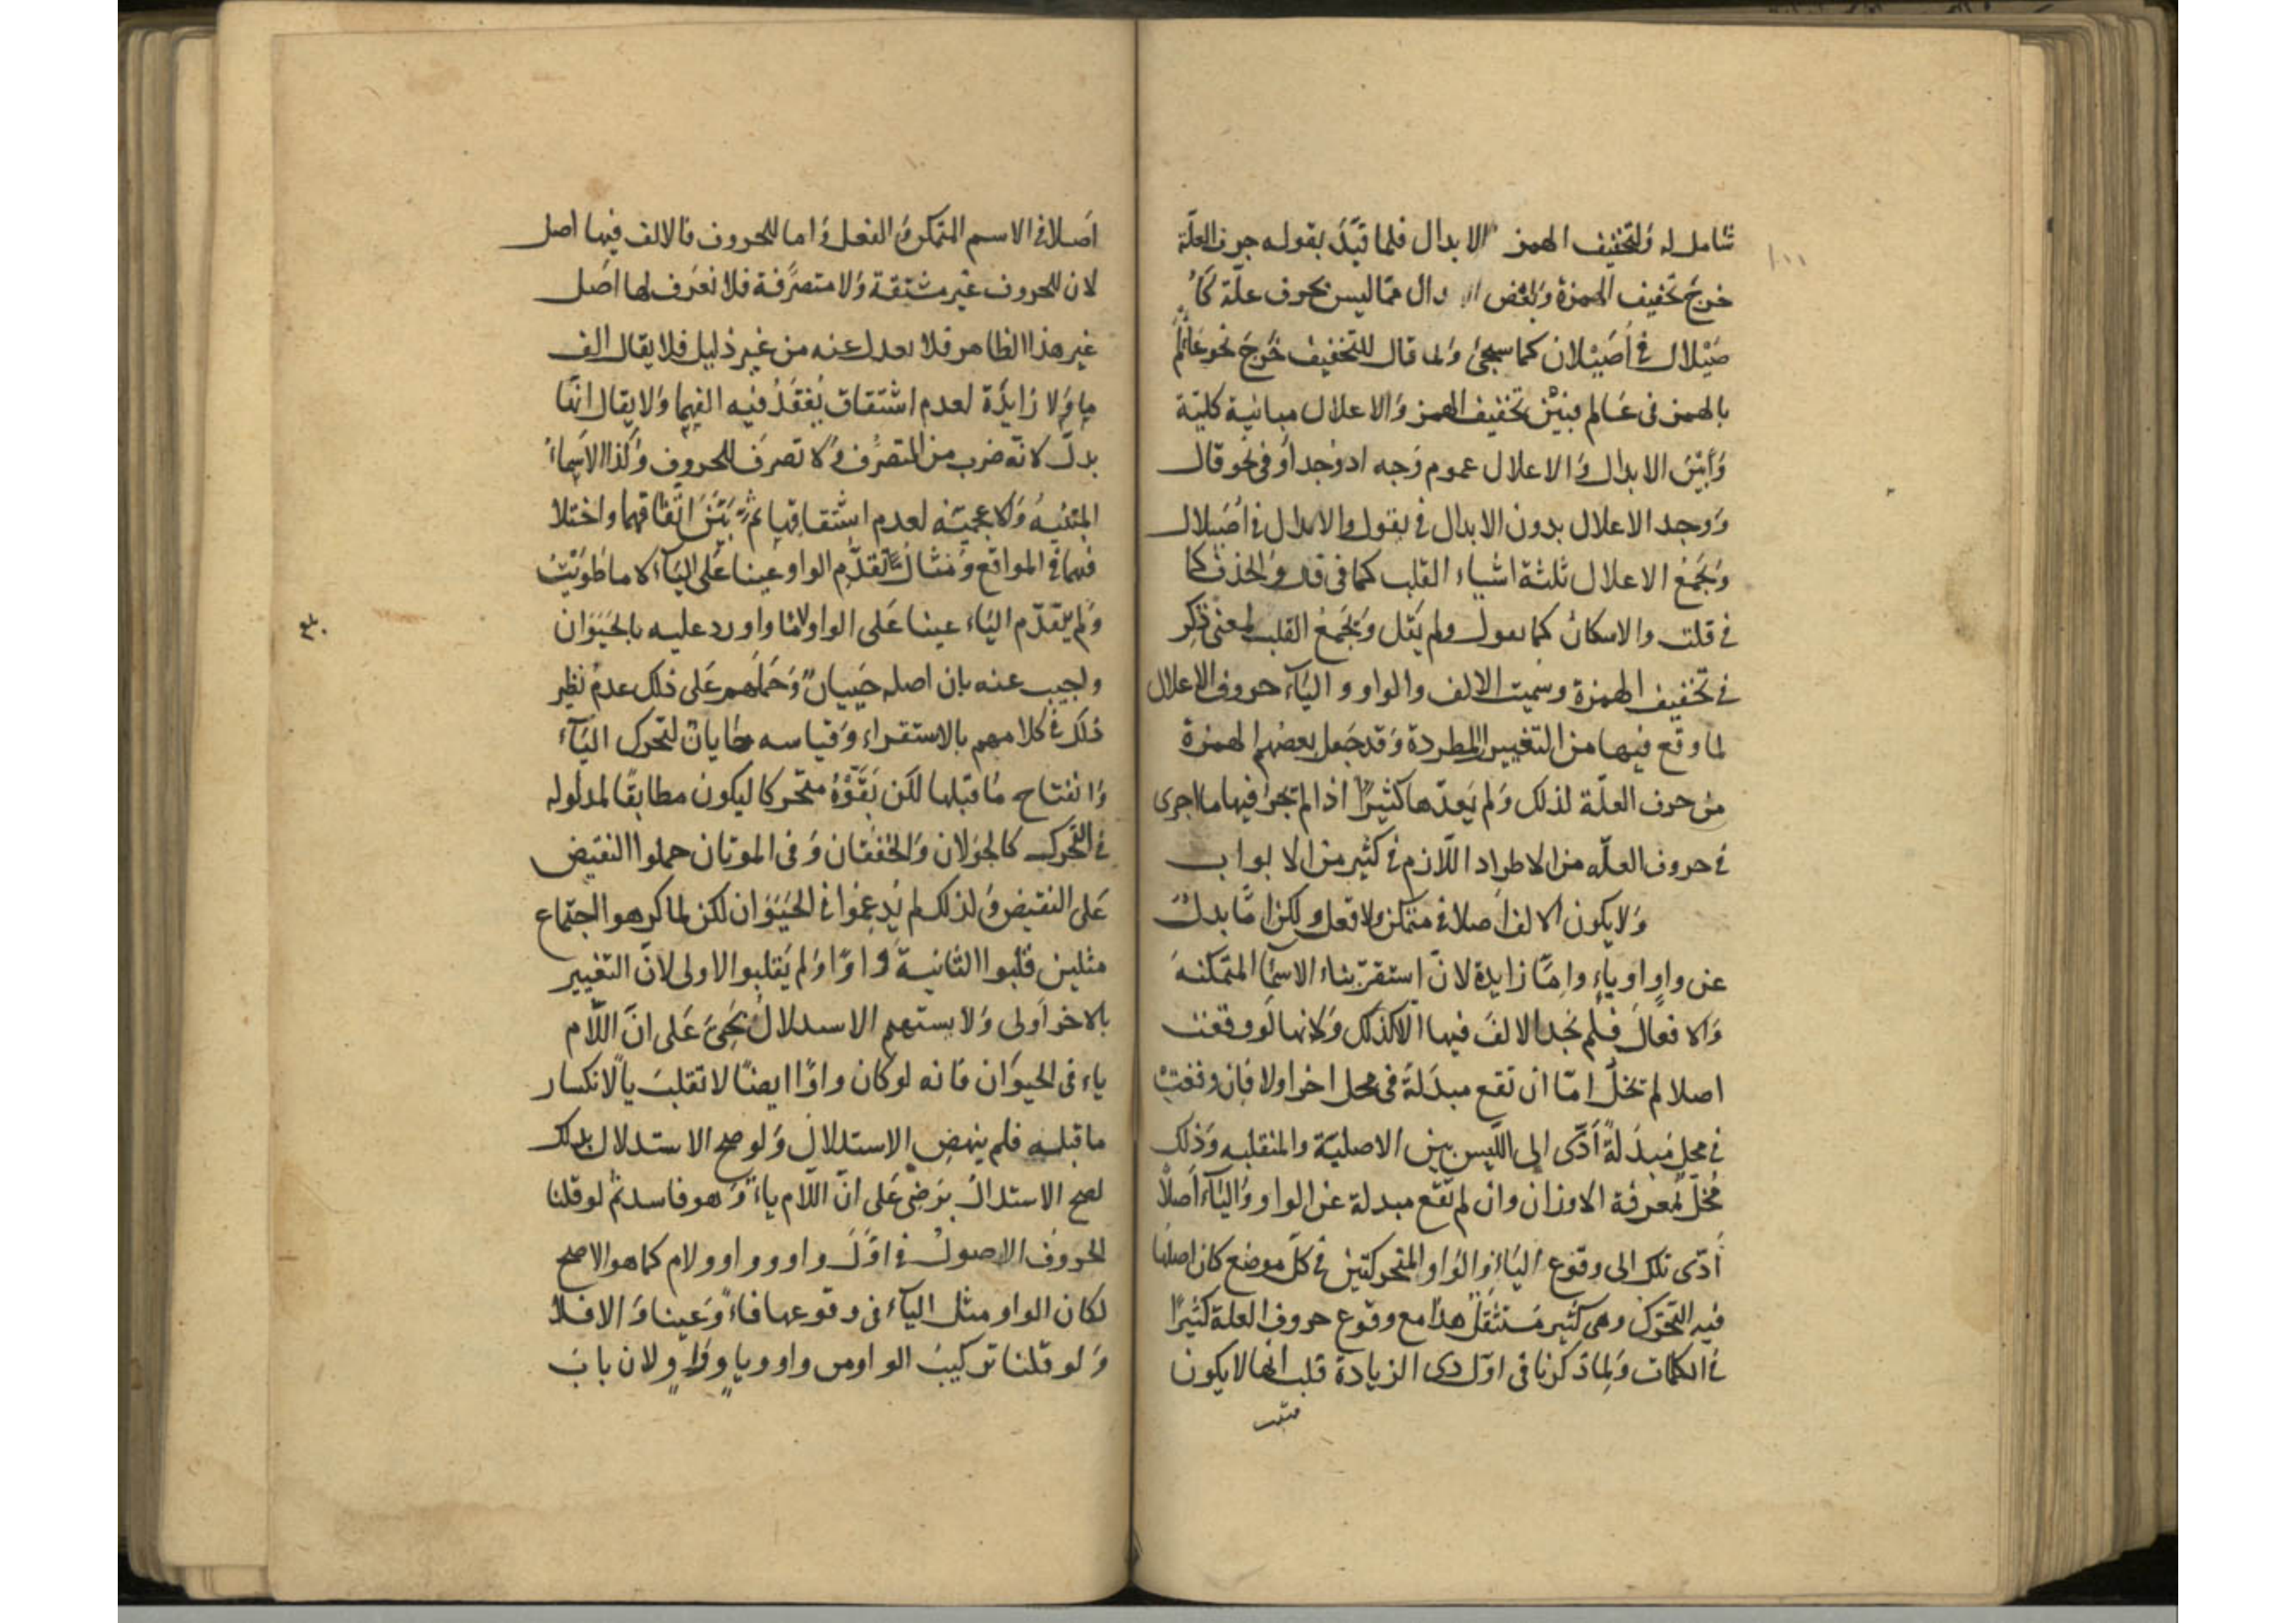 شامل له ولتخفيف الهمز الابدال فلما قيد بقوله حرف العلة
خرج تخفيف الهمزة وبعض مما ليس بحرف علة كأ
صيلال في أصيلان كما سيجئ ولما قال للتخفيف خرج نحو عالم
بالهمز في عالم فبين تخفيف الهمز والاعلال مباينة كلية
وبين الابدال والاعلال عموم وجه اذ وجدا في نحو قال
ووجد الاعلال بدون الابدال في يقول والابدال في أصيلال
ويجمع الاعلال ثلثة اشياء القلب كما في قال والحذف كما
في قلت والاسكان كما يقول ولم يقل ويجمع القلب لمعنى ذكر
في تخفيف الهمزة وسميت الالف والواو والياء حروف الاعلال
لما وقع فيها من التغيير المطردة وقد جعل بعضهم الهمزة
من حرف العلة لذلك ولم يعدها كثيرا اذا لم تجر فيها ما اجرى
في حروف العله من الاطراد اللازم في كثير من الابواب
ولا يكون الالف اصلا في متمكن ولا فعل ولكن اما بدل
عن واو او ياء واما زايدة لان استقر بناء الاسما المتمكنه
والافعال فلم نجد الالف فيها الا كذلك ولانها لو وقعت
اصلا لم تخل اما ان تقع مبدلة في محل اخر اولا فان وقعت
في محل مبدلة أدى الى اللبس بين الاصلية والمنقلبه وذلك
مخل لمعرفة الاوزان وان لم تقع مبدلة عن الواو والياء أصلا
أدى تلك الى وقوع الياء والواو المتحركتين في كل موضع كان اصلها
فيه التحرك وهي كثير مستثقل هذا مع وقوع حروف العلة كثيرا
في الكلمات ولما ذكرنا في اول ذي الزيادة قلب انها لا يكون
اصلا في الاسم المتمكن والفعل واما الحروف فالالف فيها اصل
لان الحروف غير مشتقة ولا متصرفة فلا نعرف لها اصل
غير هذا الظاهر فلا يعدل عنه من غير دليل فلا يقال الف
ما ولا زايدة لعدم اشتقاق يفقد فيه الفهما ولا يقال انها
بدل لانه ضرب من التصرف ولا تصرف للحروف وكذا الاسماء
المبنيه والاعجمية لعدم اشتقاقها ثم بين اتفاقهما واختلا
فهما في المواقع ومثال تقدم الواو عينا على الياء لاما طويت
ولم يتقدم الياء عينا على الواو لاما واورد عليه بالحيوان
واجيب عنه بان اصله حييان وحملهم على ذلك عدم نظير
ذلك في كلامهم بالاستقراء وقياسه حايان لتحرك الياء
وانفتاح ما قبلها لكن بقوه متحركا ليكون مطابقا لمدلوله
في التحرك كالجولان والخفقان وفي الموتان حملوا النقيض
على النقيض ولذلك لم يدغموا في الحيوان لكن لما كرهوا اجتماع
مثلين قلبوا الثانية واوا ولم يقلبوا الاولى لان التغيير
بالاخر أولى ولا يستهم الاستدلال بحيي على ان اللام
ياء في الحيوان فانه لو كان واوا ايضا لانقلبت يا لانكسار
ما قبله فلم ينهض الاستدلال ولو صح الاستدلال بذلك
لصح الاستدلال برضي على ان اللام ياء وهو فاسد ثم لو قلنا
الحروف الاصول في اول واو وواو ولام كما هو الاصح
لكان الواو مثل الياء في وقوعها فاء وعينا والا فلا
ولو قلنا تركيب الواو من واو ويا وواو ولان باب